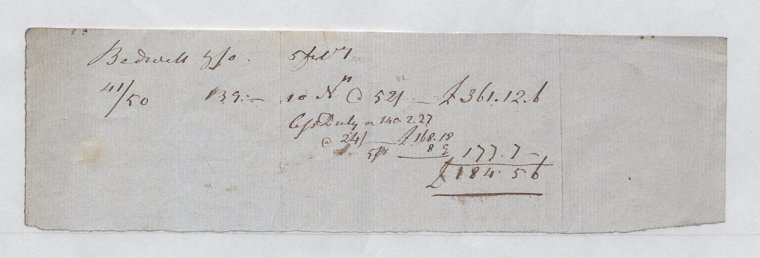 Bedwell & Co. 5 Feb 1
41/50 139.— 10 N @ 52/ — £361.12.6
Less Duty on 140.2.27
@ 24/ — £168.18
5 p 8 9 177.7 —
£184.5 6